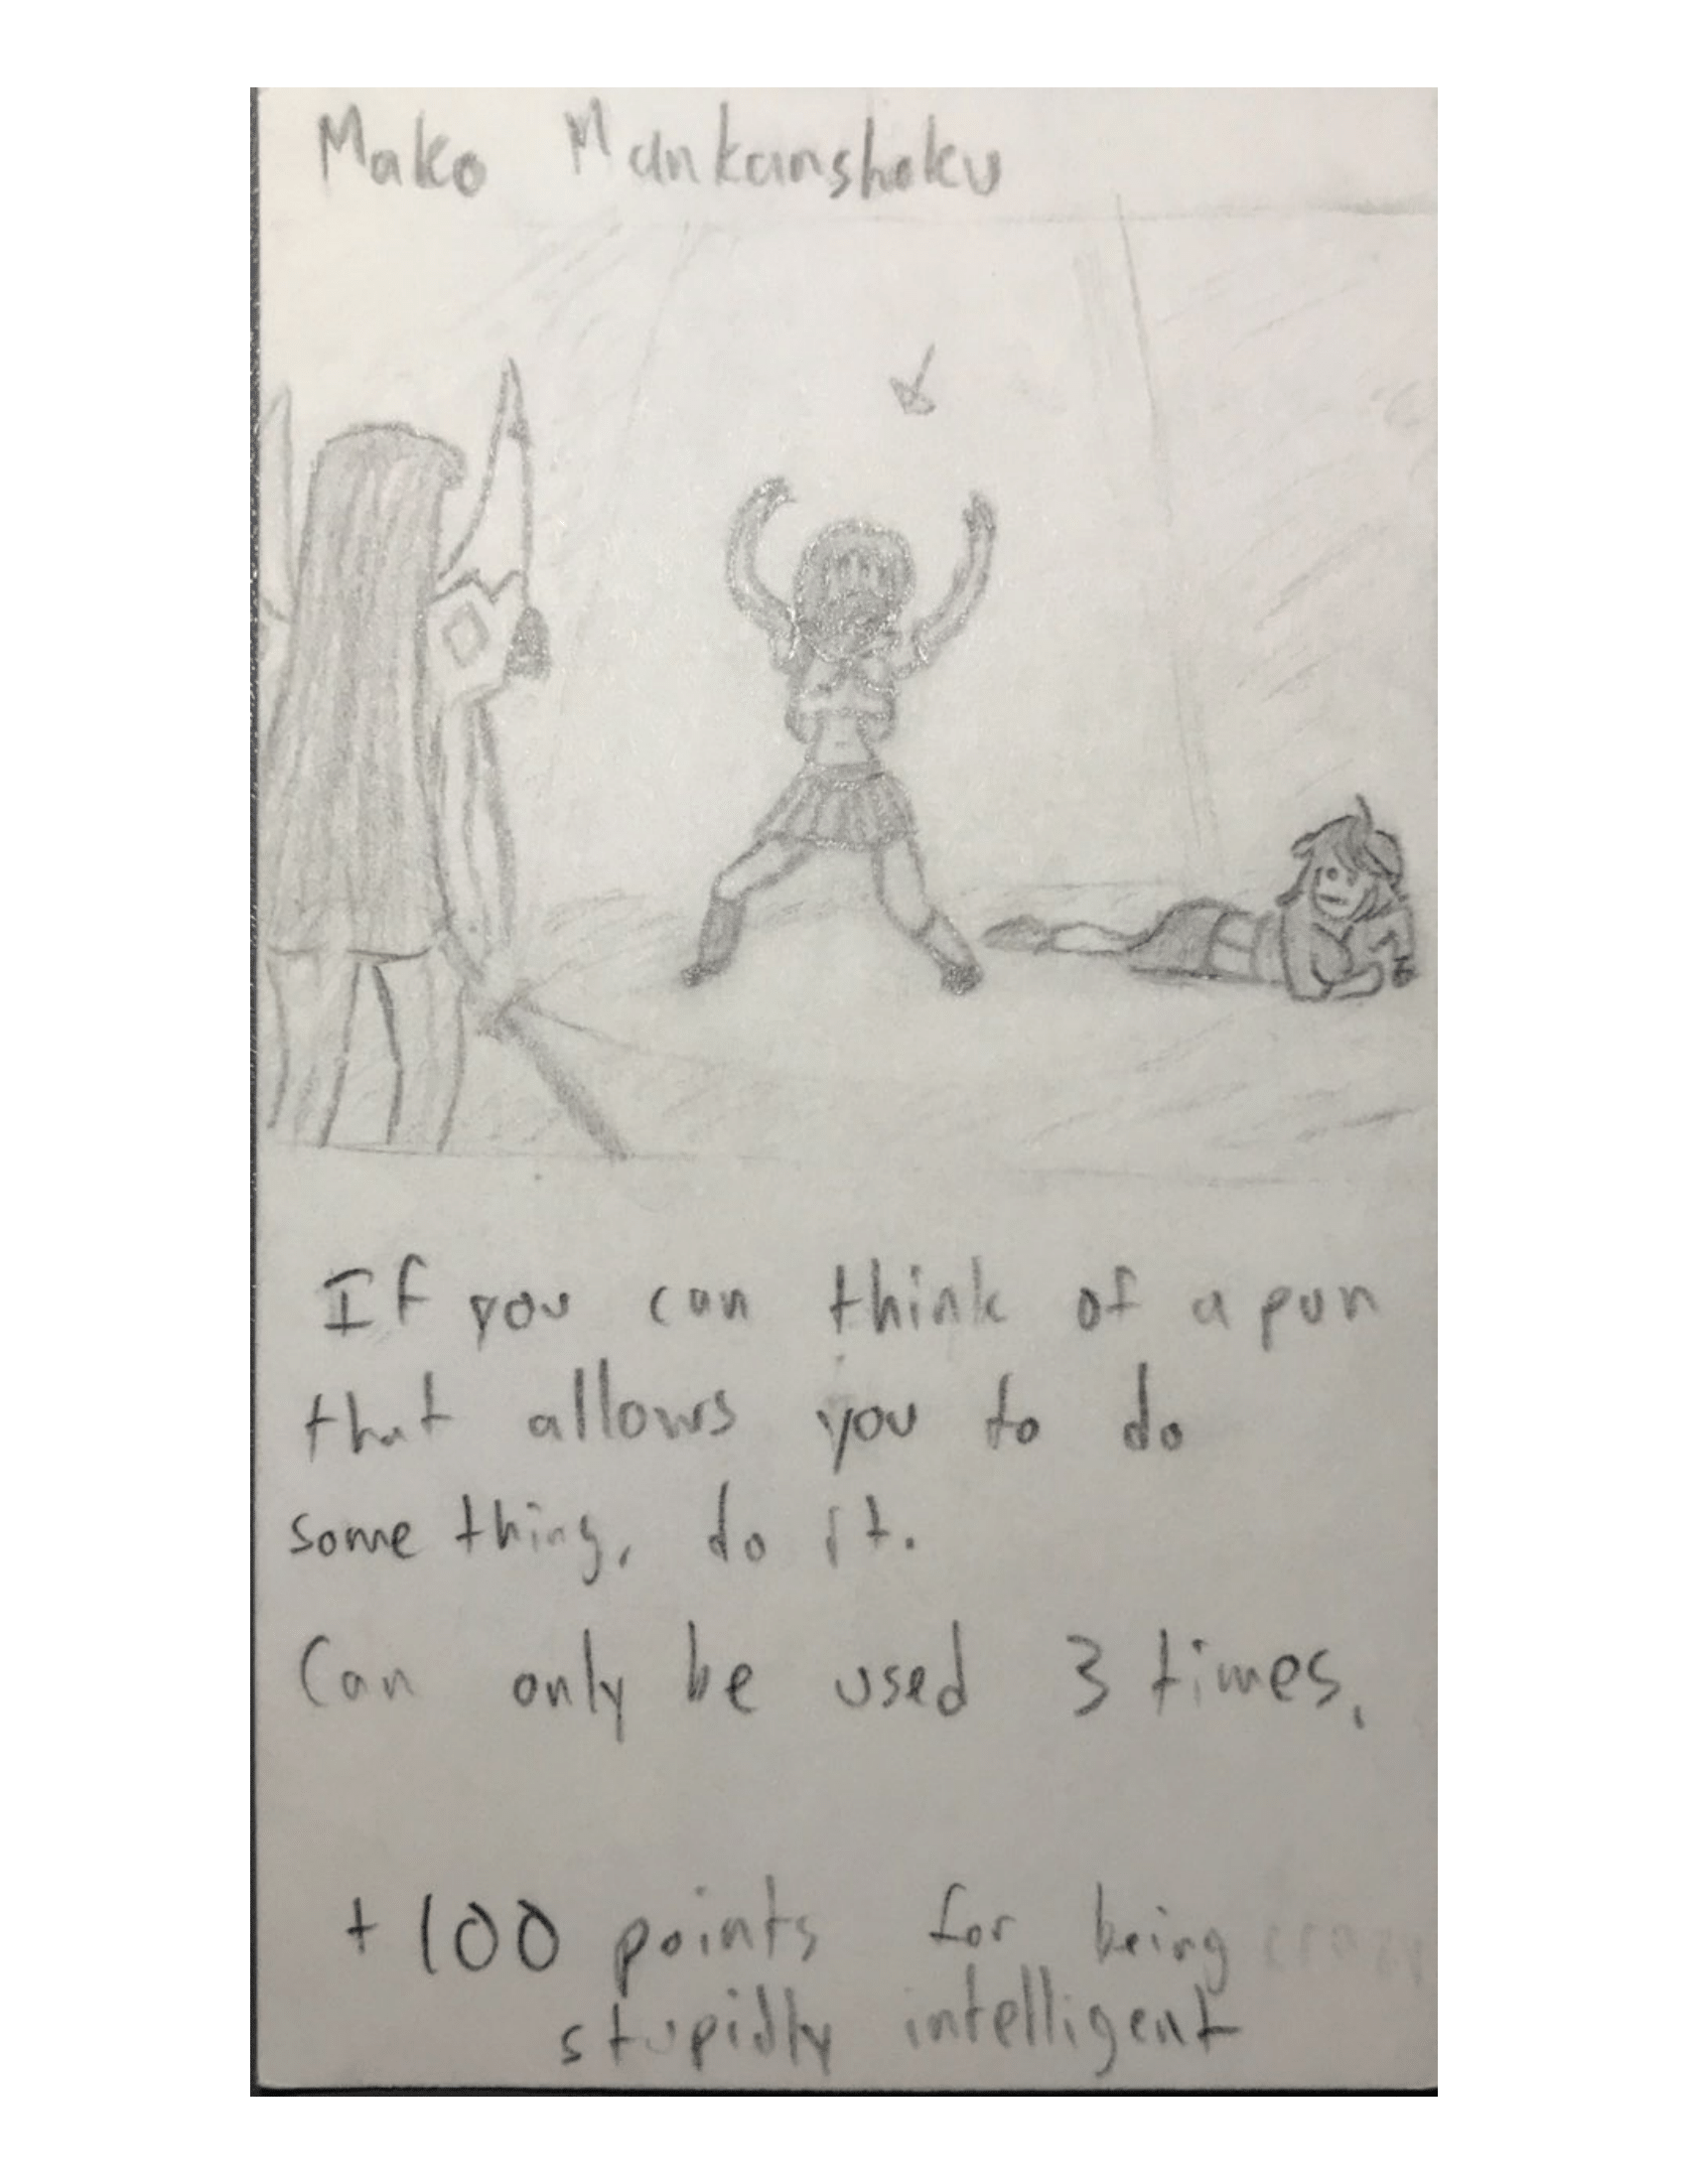 Mako Mankanshoku
If you can think of a pun
that allows you to do
something, do it.
Can only be used 3 times.
+100 points for being crazy
stupidly intelligent